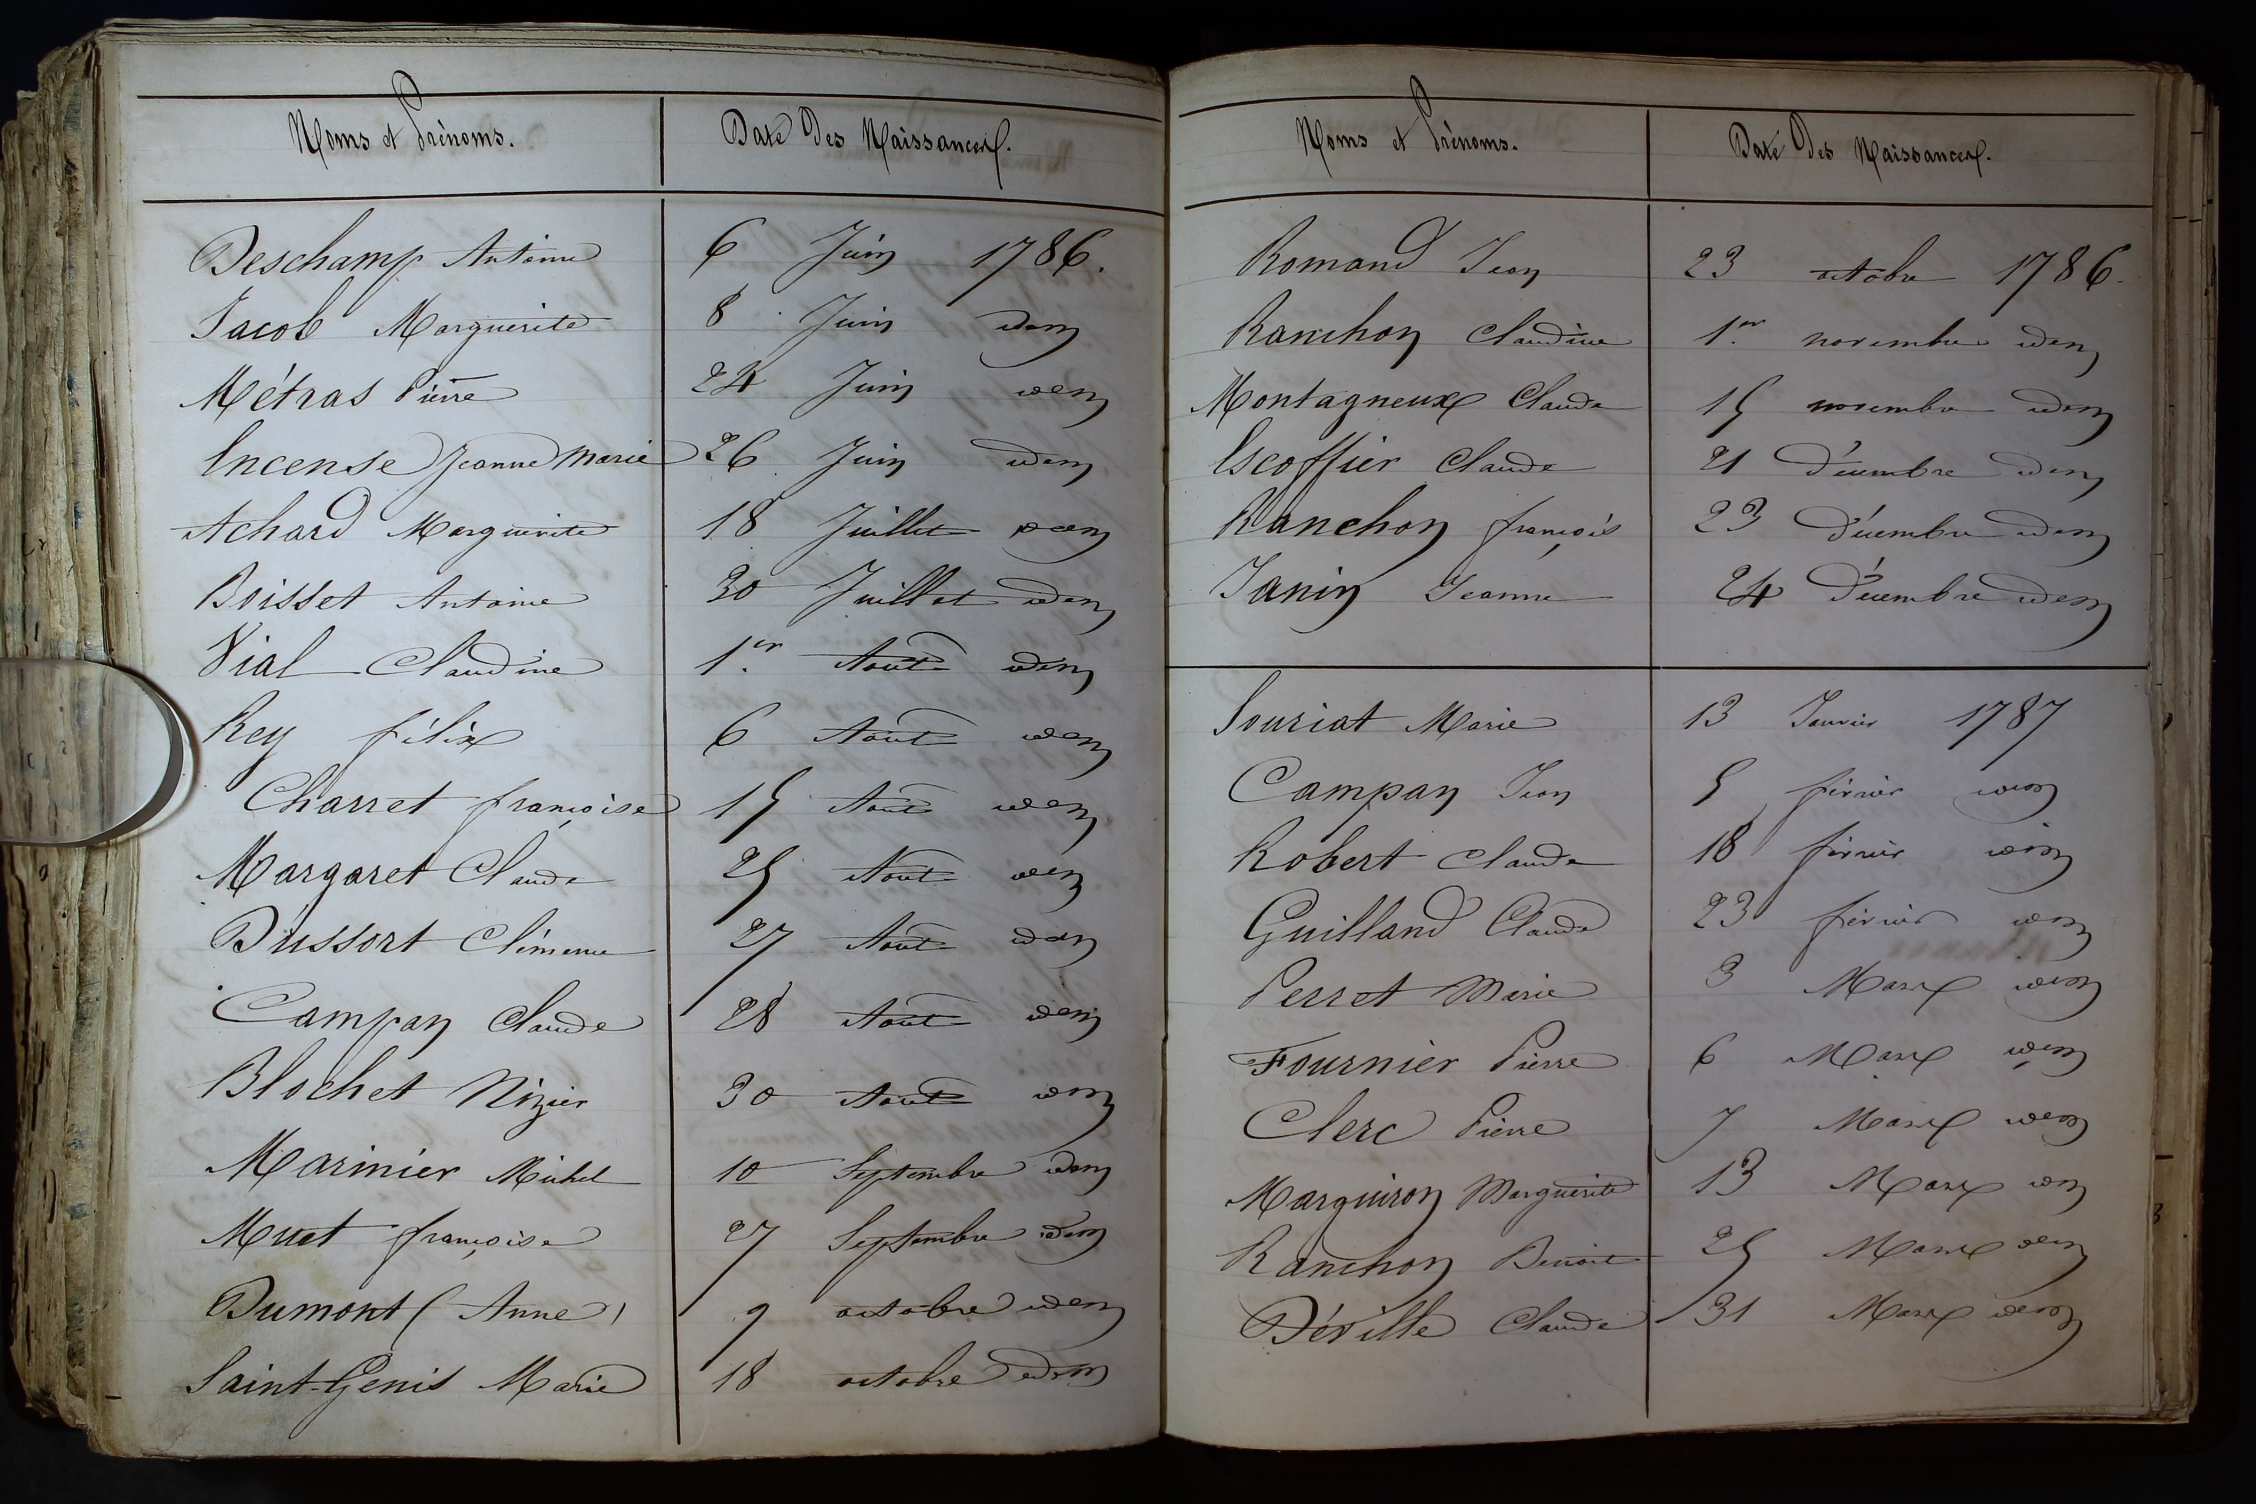 Noms et Prénoms. Date Des Naissances.
Deschamp Antoine 6 Juin 1786.
Jacob Marguerite 8 Juin idem
Métras Pierre 24 Juin idem
Incense Jeanne Marie 26 Juin idem
Achard Marguerite 18 Juillet idem
Boisset Antoine 30 Juillet idem
Vial Claudine 1.er Aout idem
Rey félix 6 Aout idem
Charret françoise 15 Aout idem
Margaret Claude 25 Aout idem
Dussort Clémence 27 Aout idem
Campan Claude 28 Aout idem
Blochet Nizier 30 Aout idem
Marinier Michel 10 Septembre idem
Muet françoise 27 Septembre idem
Dumont (Anne) 9 octobre idem
Saint-Genis Marie 18 octobre idem
Noms et Prénoms. Date Des Naissances.
Romand Jean 23 octobre 1786.
Ranchon Claudine 1.er novembre idem
Montagneux Claude 15 novembre idem
Escoffier Claude 21 Décembre idem
Ranchon françois 23 Décembre idem
Janin Jeanne 24 Décembre idem
Souriat Marie 13 Janvier 1787
Campan Jean 5 février idem
Robert Claude 18 février idem
Guilland Claude 23 février idem
Perret Marie 3 Mars idem
Fournier Pierre 6 Mars idem
Clerc Pierre 7 Mars idem
Marguiron Marguerite 13 Mars idem
Ranchon Benoit 25 Mars idem
Déville Claude 31 Mars idem